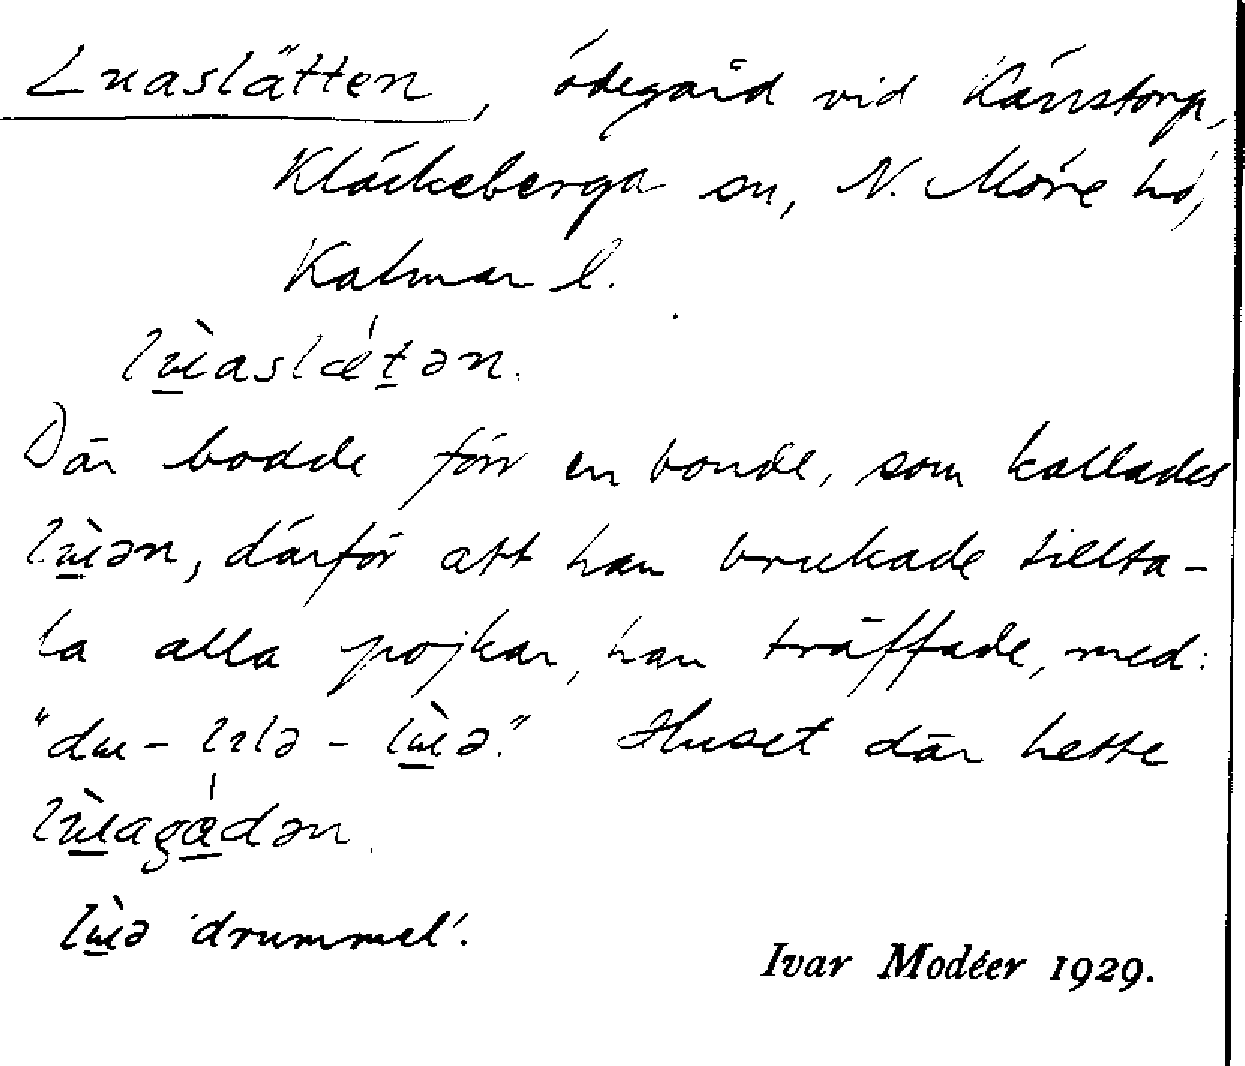 Luaslätten, ödegård vid Kärrstorp,
Kläckeberga sn, N. Möre hd,
Kalmar l.
lɯ̀aslǽtən.
Där bodde förr en bonde, som kallades
lɯ̀ən, därför att han brukade tillta-
la alla pojkar, han träffade, med:
"dɯ - lɪlə - lɯ̀ə." Huset där hette
lɯ̀agádən.
lɯ̀ə 'drummel'.
Ivar Modéer 1929.